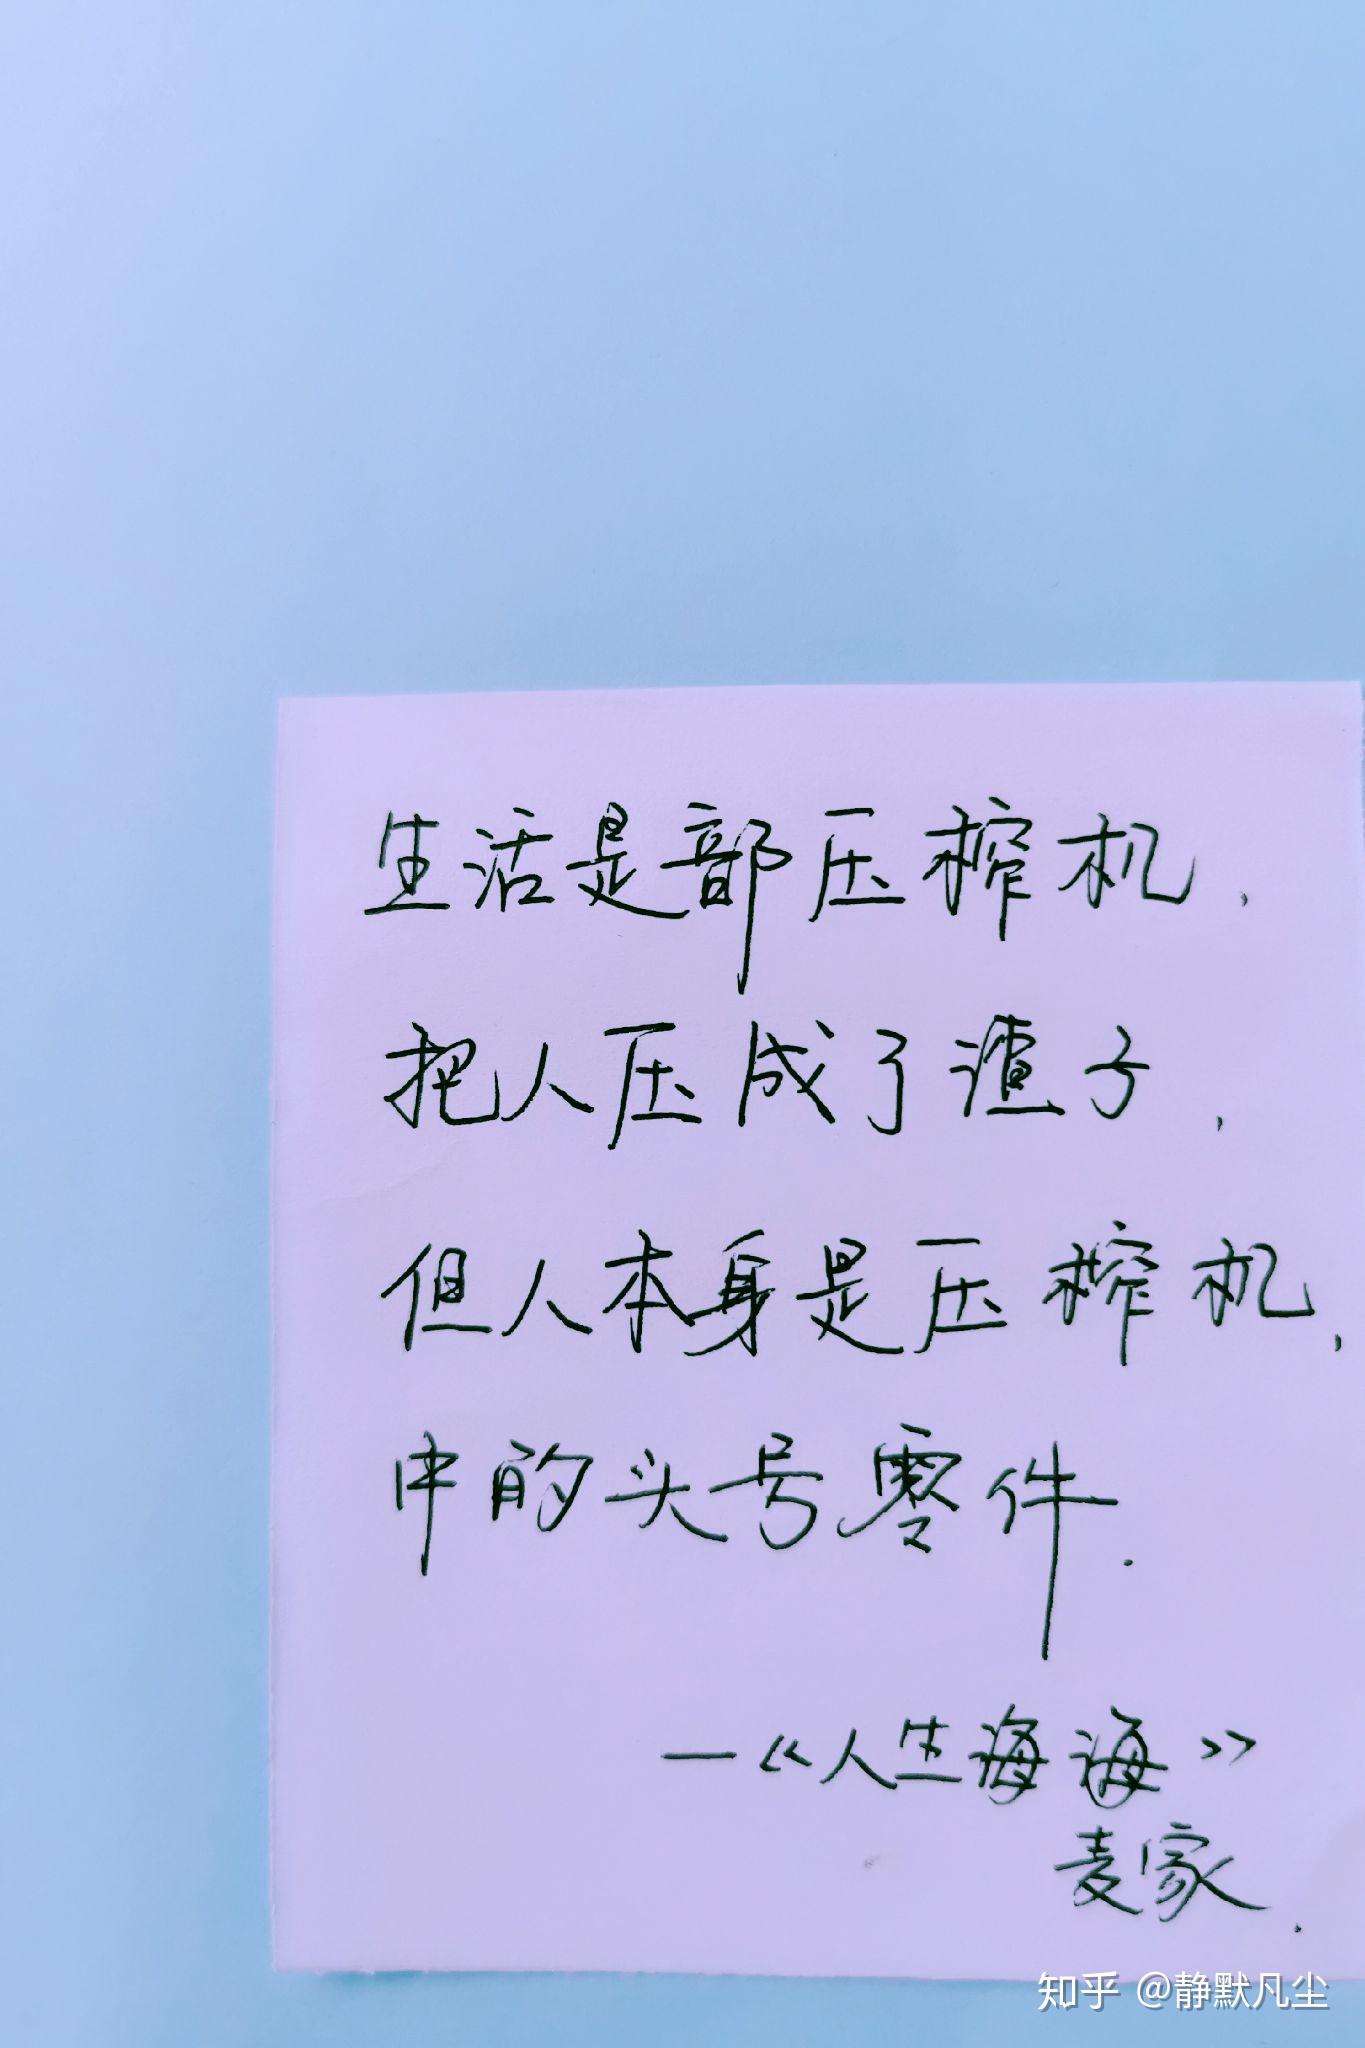 生活是部压榨机，
把人压成了渣子，
但人本身是压榨机，
中的头号零件.
—《人生海海》
麦家.
知乎 @静默凡尘